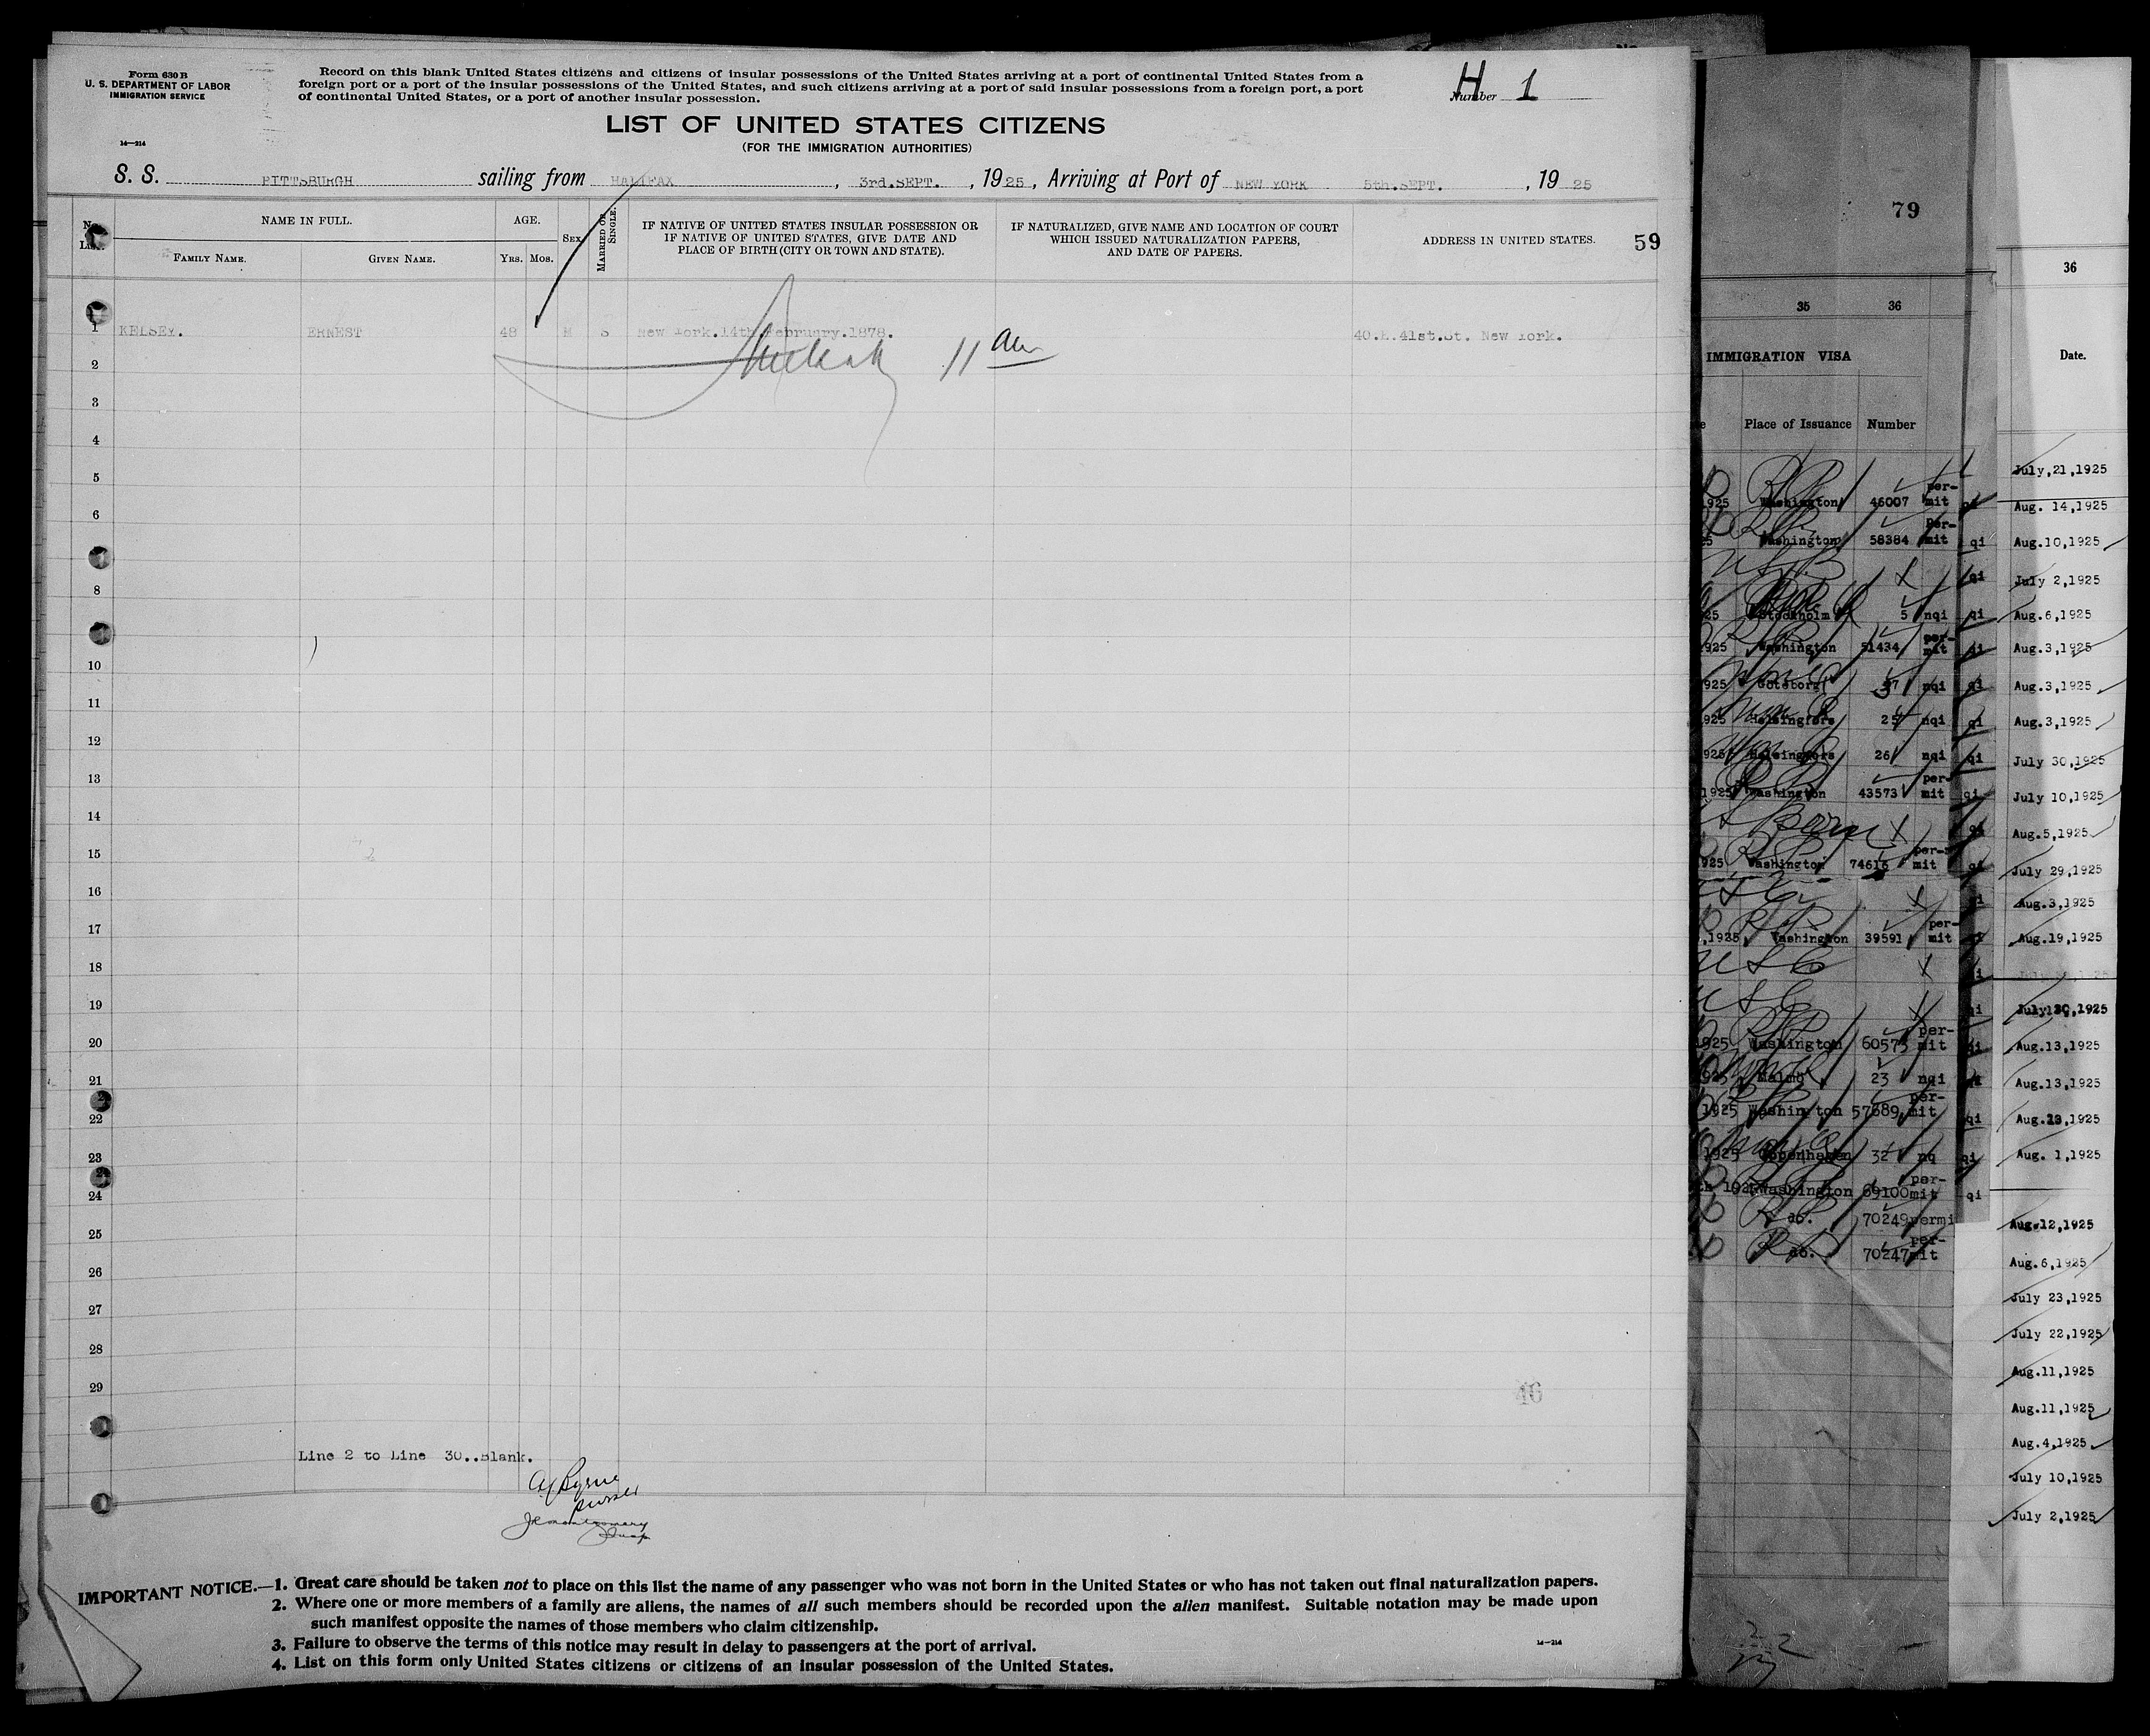 Form 630 B
U. S. DEPARTMENT OF LABOR
IMMIGRATION SERVICE
14—214
Record on this blank United States citizens and citizens of insular possessions of the United States arriving at a port of continental United States from a
foreign port or a port of the insular possessions of the United States, and such citizens arriving at a port of said insular possessions from a foreign port, a port
of continental United States, or a port of another insular possession.
H
Number 1
LIST OF UNITED STATES CITIZENS
(FOR THE IMMIGRATION AUTHORITIES)
S. S. PITTSBURGH sailing from HALIFAX, 3rd.SEPT., 1925, Arriving at Port of NEW YORK 5th.SEPT., 1925
NAME IN FULL.
FAMILY NAME.
GIVEN NAME.
AGE.
YRS. MOS.
SEX
MARRIED OR SINGLE.
IF NATIVE OF UNITED STATES INSULAR POSSESSION OR
IF NATIVE OF UNITED STATES, GIVE DATE AND
PLACE OF BIRTH (CITY OR TOWN AND STATE).
IF NATURALIZED, GIVE NAME AND LOCATION OF COURT
WHICH ISSUED NATURALIZATION PAPERS,
AND DATE OF PAPERS.
ADDRESS IN UNITED STATES.
59
1 KELSEY. ERNEST 48 M S New York.14th February.1878. 40.E.41st.St. New York.
2
11
3
4
5
6
8
10
11
12
13
14
15
16
17
18
19
20
21
22
23
24
25
26
27
28
29
46
Line 2 to Line 30..Blank.
Byrne
Purser
JRMontgomery
IMPORTANT NOTICE.—1. Great care should be taken not to place on this list the name of any passenger who was not born in the United States or who has not taken out final naturalization papers.
2. Where one or more members of a family are aliens, the names of all such members should be recorded upon the alien manifest. Suitable notation may be made upon
such manifest opposite the names of those members who claim citizenship.
3. Failure to observe the terms of this notice may result in delay to passengers at the port of arrival.
4. List on this form only United States citizens or citizens of an insular possession of the United States.
14—214
79
35 36
IMMIGRATION VISA
Place of Issuance Number
1925 Washington 46007 per-
mit
Washington 58384 per-
mit qi
qi
Stockholm 5 nqi qi
1925 Washington 51434 per-
mit qi
1925 Goteborg 37 nqi qi
1925 Helsingfors 25 nqi qi
1925 Helsingfors 26 nqi qi
1925 Washington 43573 per-
mit qi
Born
1925 Washington 74616 per-
mit qi
,1925, Washington 39591 per-
mit
USC
USC
1925 Washington 60573 per-
mit qi
1925 Malmö 23 nqi
1925 Washington 57689 per-
mit qi
1925 Copenhagen 32 nq qi
Washington 69100 per-
mit qi
do. 70249 permi
do. 70247 per-
mit
36
Date.
July,21,1925
Aug. 14,1925
Aug.10,1925
July 2,1925
Aug.6,1925
Aug.3,1925
Aug.3,1925
Aug.3,1925
July 30,1925
July 10,1925
Aug.5,1925
July 29,1925
Aug.3,1925
Aug.19,1925
Aug.13,1925
Aug.13,1925
Aug. 1,1925
Aug.12,1925
Aug.6,1925
July 23,1925
July 22,1925
Aug.11,1925
Aug.11,1925
Aug.4,1925
July 10,1925
July 2,1925